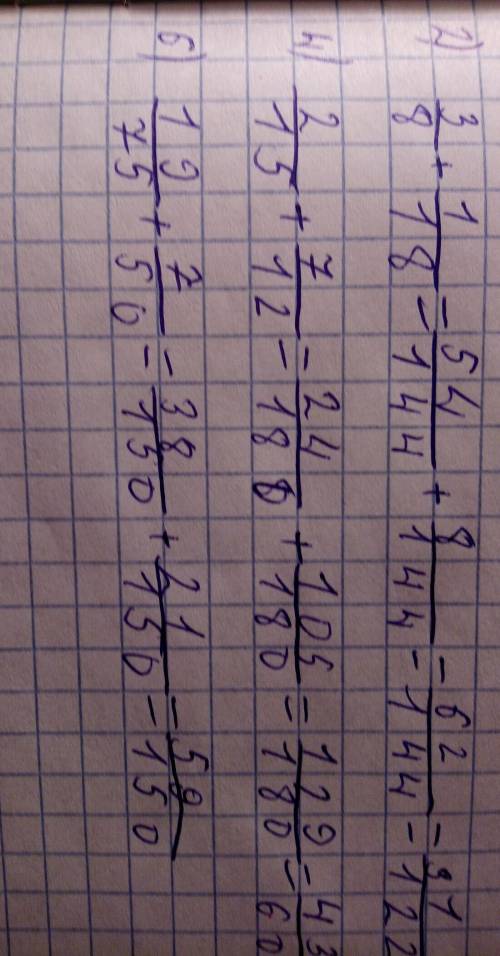 2) 3/8 + 1/18 = 54/144 + 8/144 = 62/144 = 31/122
4) 2/15 + 7/12 = 24/180 + 105/180 = 129/180 = 43/60
6) 19/75 + 7/50 = 38/150 + 21/150 = 59/150